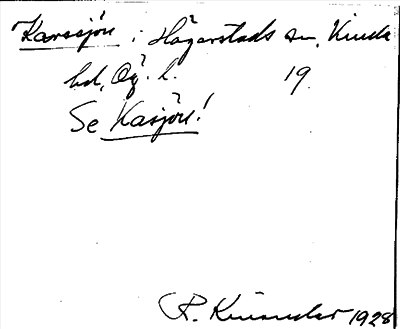 Karssjön i Hägerstads sn, Kinda
hd, Ög. l. 19
Se Kasjön!
R. Kinander 1928